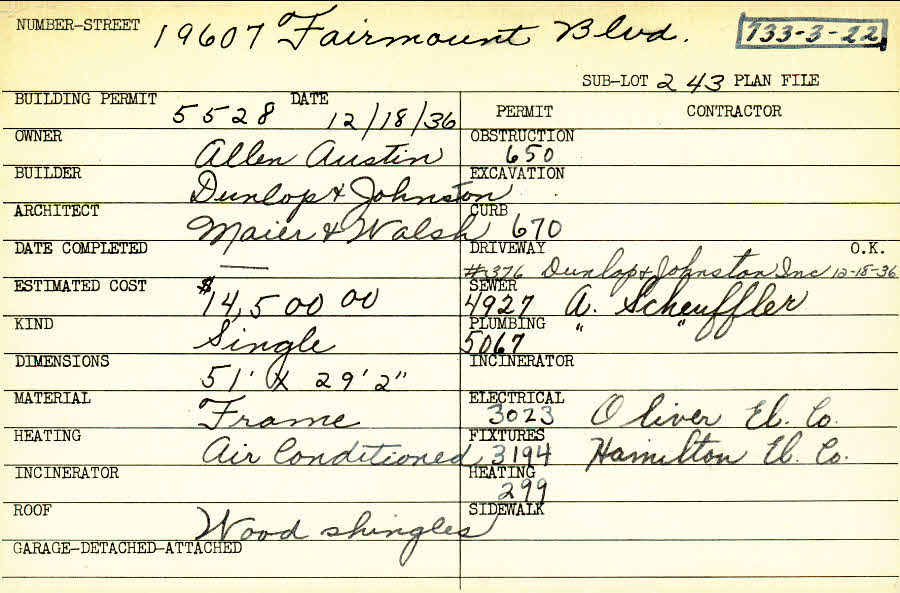 NUMBER-STREET 19607 Fairmount Blvd. 733-3-22
SUB-LOT 243 PLAN FILE
BUILDING PERMIT 5528 DATE 12/18/36 PERMIT CONTRACTOR
OWNER Allen Austin OBSTRUCTION 650
BUILDER Dunlop & Johnston EXCAVATION
ARCHITECT Maier & Walsh CURB 670
DATE COMPLETED — DRIVEWAY O.K.
#376 Dunlop & Johnston Inc 12-18-36
ESTIMATED COST $14,500 00 SEWER 4927 A. Scheuffler
KIND Single PLUMBING 5067 " "
DIMENSIONS 51' X 29'2" INCINERATOR
MATERIAL Frame ELECTRICAL 3023 Oliver El. Co.
HEATING Air Conditioned FIXTURES 3194 Hamilton El. Co.
INCINERATOR HEATING 299
ROOF Wood shingles SIDEWALK
GARAGE-DETACHED-ATTACHED